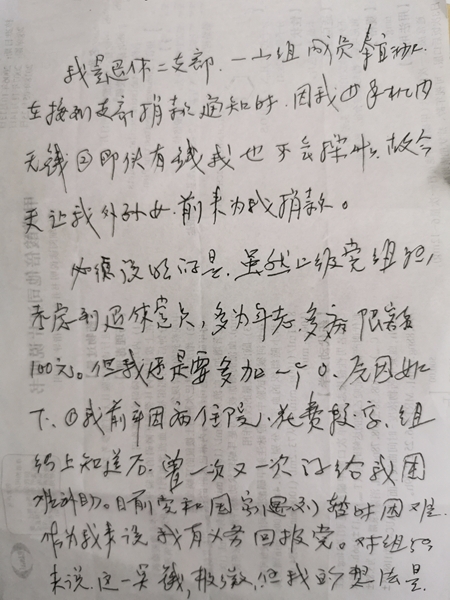 我是退休二支部.一小组成员
在接到支部捐款通知时.因我①手机内
无钱②即使有钱我也不会操作.故今
天让我外孙女.前来为我捐款。
必须说明的是.虽然上级党组织,
考虑到退休党员,多为年老.多病 限额
100元。但我还是要多加一个0.原因如
下.①我前年因病住院,花费较多.组
织上知道后.曾一次又一次 给我困
难补助。目前党和国家遇到暂时困难.
作为我来说 我有义务回报党。对组织
来说.这一点钱,极微,但我的想法是.